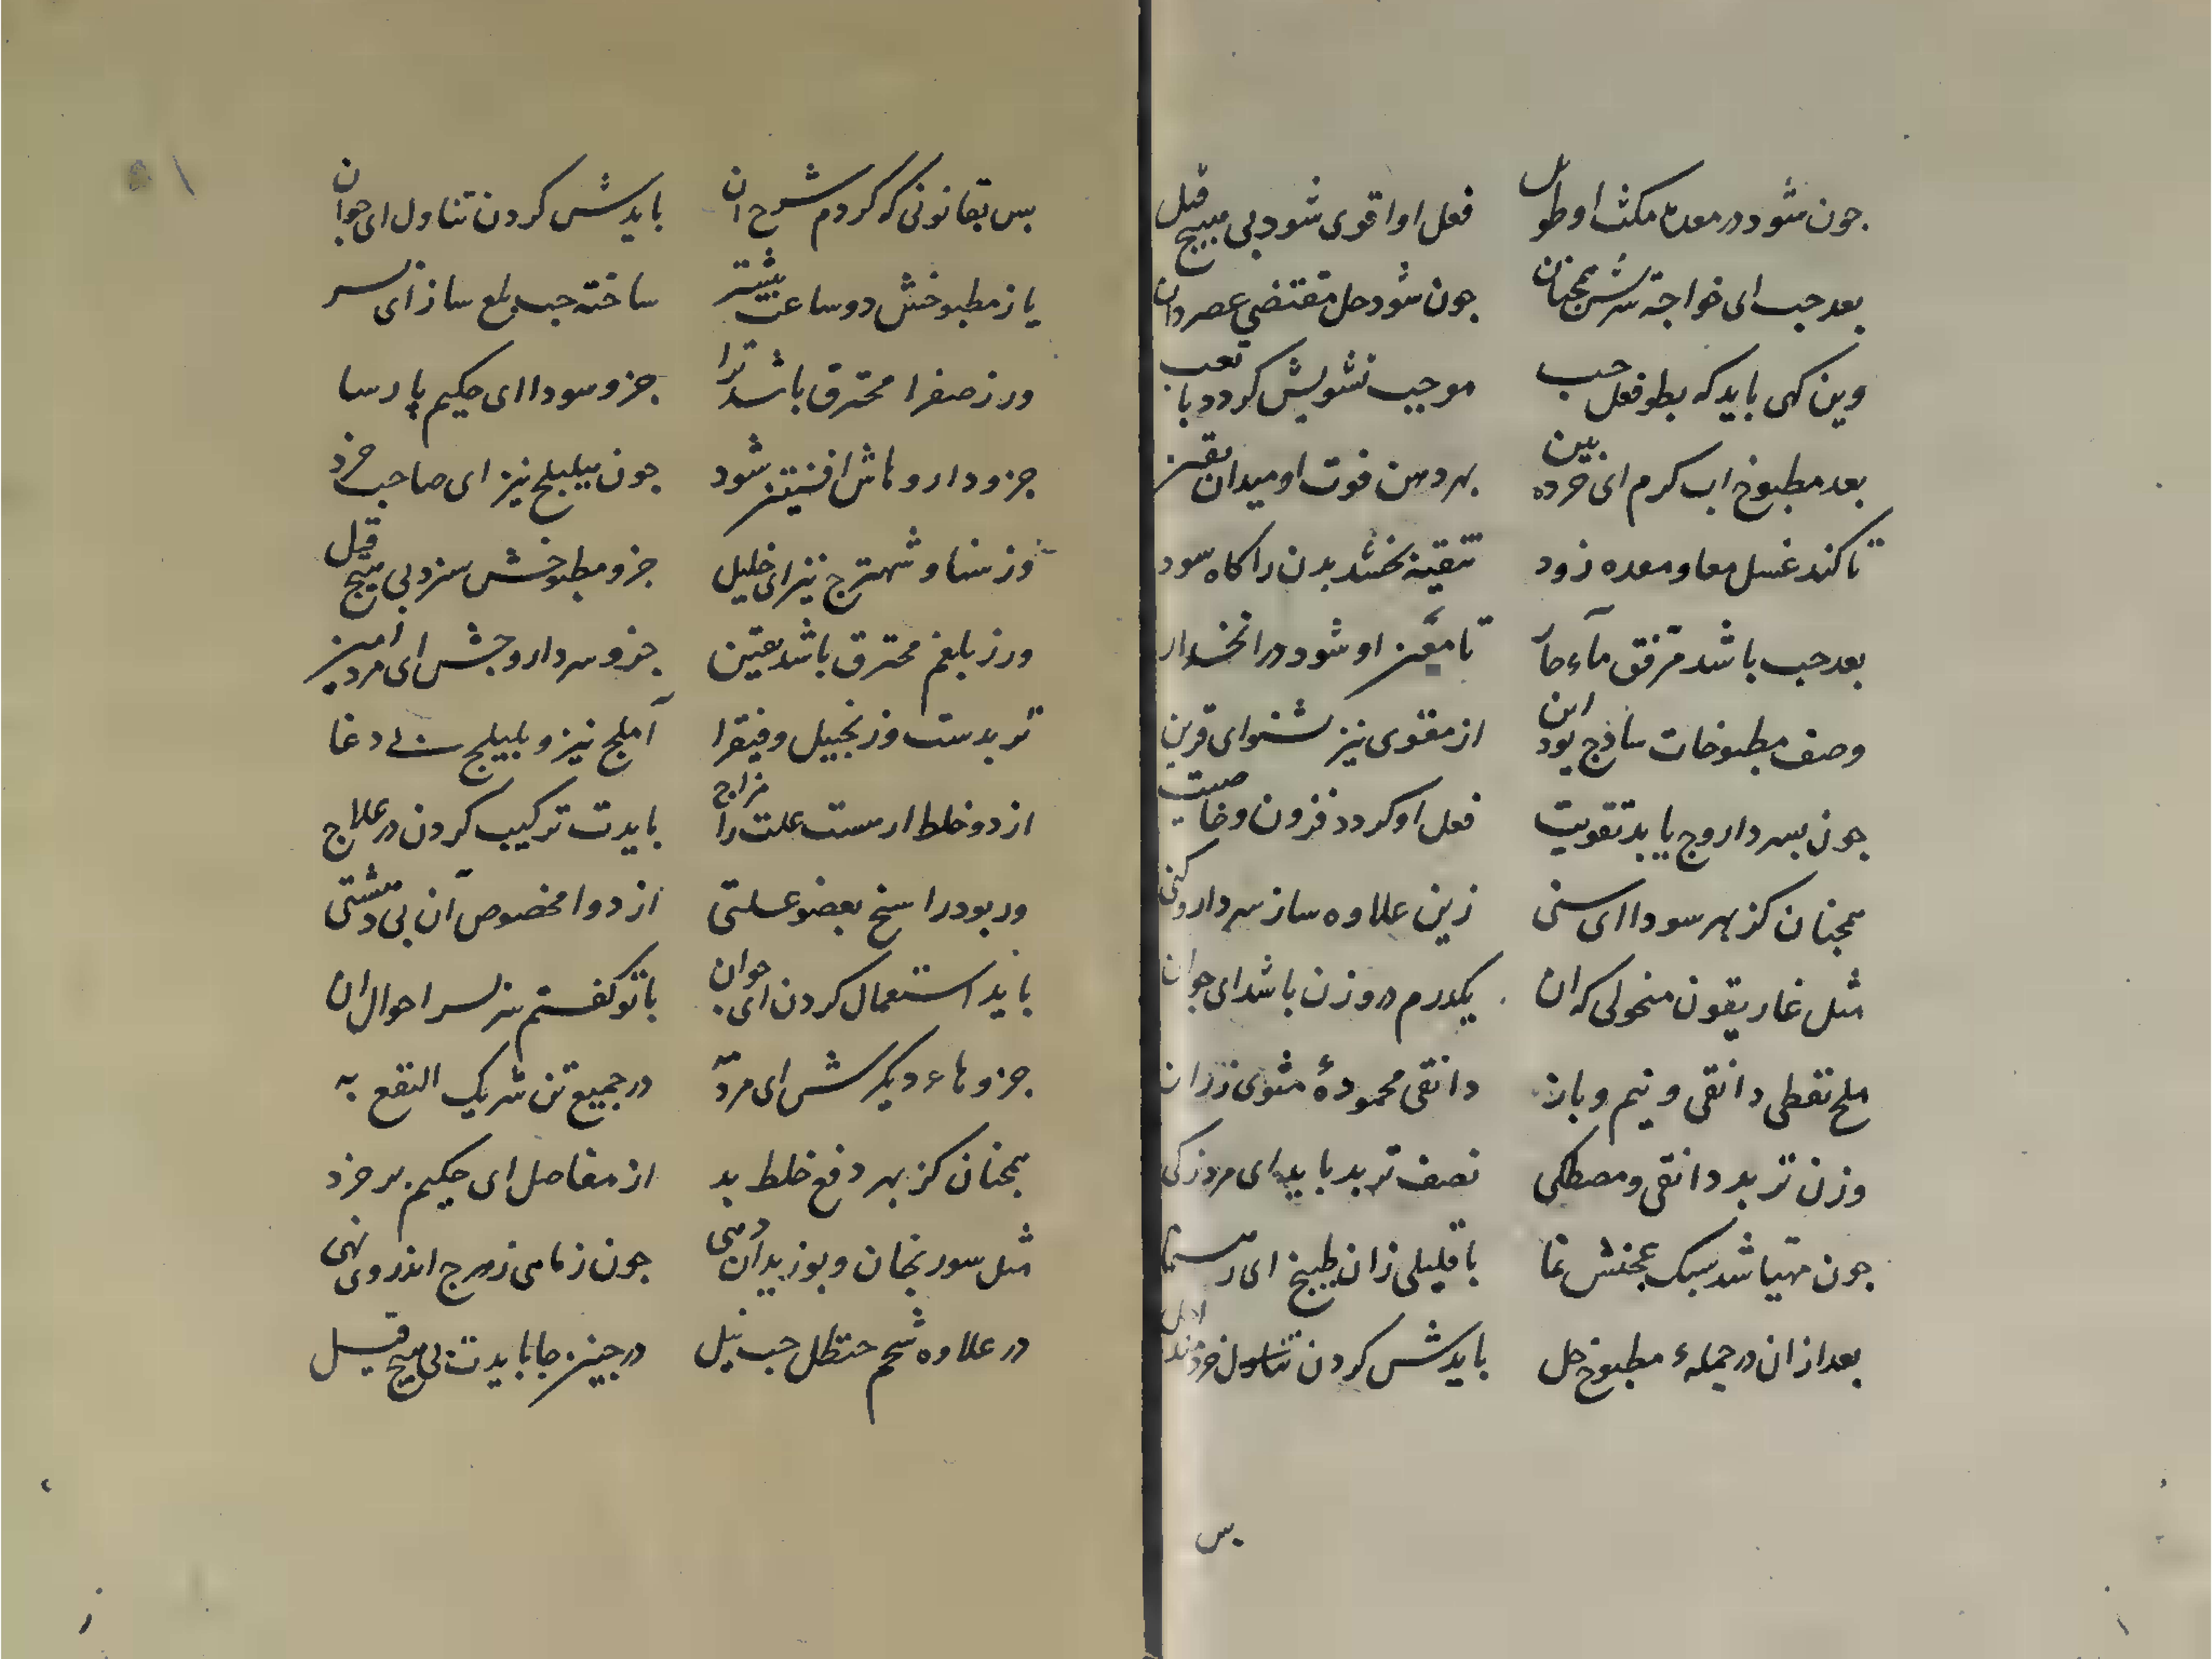 جون شود در معده مکث او طویل فعل او اقوی شود بی هیچ قیل
بعد حب ای خواجه شرش همچنان جون شود حل مقتضی عصر دان
وین کهی باید که بطو فعل حب موجب تشویش کردد با تعب
بعد مطبوخ اب کرم ای خرده بین بهر دهن فوت او میدان یقین
تا کند غسل معا و معده زود تنقیه بخشد بدن را کاه سود
بعد حب باشد مرفق ماء حار تا معین او شود در انحدار
وصف مطبوخات ساذج بود این از مقوی نیز بشنو ای قرین
جون بسر دارو ج یابد تقویت فعل او کردد فزون و خاصیت
همجنان کز بهر سودا ای سنی زین علاوه ساز سر دارو کنی
مثل غاریقون منخولی که ان یکدرم در وزن باشد ای جوان
ملح نفطی دانقی و نیم و باز دانقی محمودهٔ مشوی زران
وزن تربد دانقی و مصطکی نصف تربد باید ای مرد زکی
جون مهیا شد سبک عجنش نما با قلیلی زان طبیخ ای رهنما
بعد ازان در جملهء مطبوخ حل بایدش کردن تناول خردمند اول
بس
۵۱
بس بقانونی که کردم شرح ان بایدش کردن تناول ای جوان
یا ز مطبوخش دو ساعت بیشتر ساخته حب بلع ساز ای بسر
ور ز صفرا محترق باشد ترا جزو سودا ای حکیم پارسا
جزو داروهاش افسنتین شود جون بلیلج نیز ای صاحب خرد
وز سنا و شهترج نیز ای خلیل جزو مطبوخش سزد بی هیچ قیل
ور ز بلغم محترق باشد یقین جزو سر داروجش ای مرد امین
تربدست و زنجبیل و فیقرا آملج نیز و بلیلج بی دغا
از دو خلط ار هست علت را مزاج بایدت ترکیب کردن در علاج
ور بود راسخ بعضو علتی از دوا مخصوص آن بی دهشتی
باید استعمال کردن ای جوان با تو کفتم سر بسر احوال ان
جزوهاء دیکرش ای مرد مه در جمیع تن شریک النفع به
همجنان کز بهر دفع خلط بد از مفاصل ای حکیم بر خرد
مثل سورنجان و بوزیدان دهی جون ز مامی زهرج اندر وی نهی
در علاوه شحم حنظل حب نیل در جنین جا بایدت بی هیچ قیل